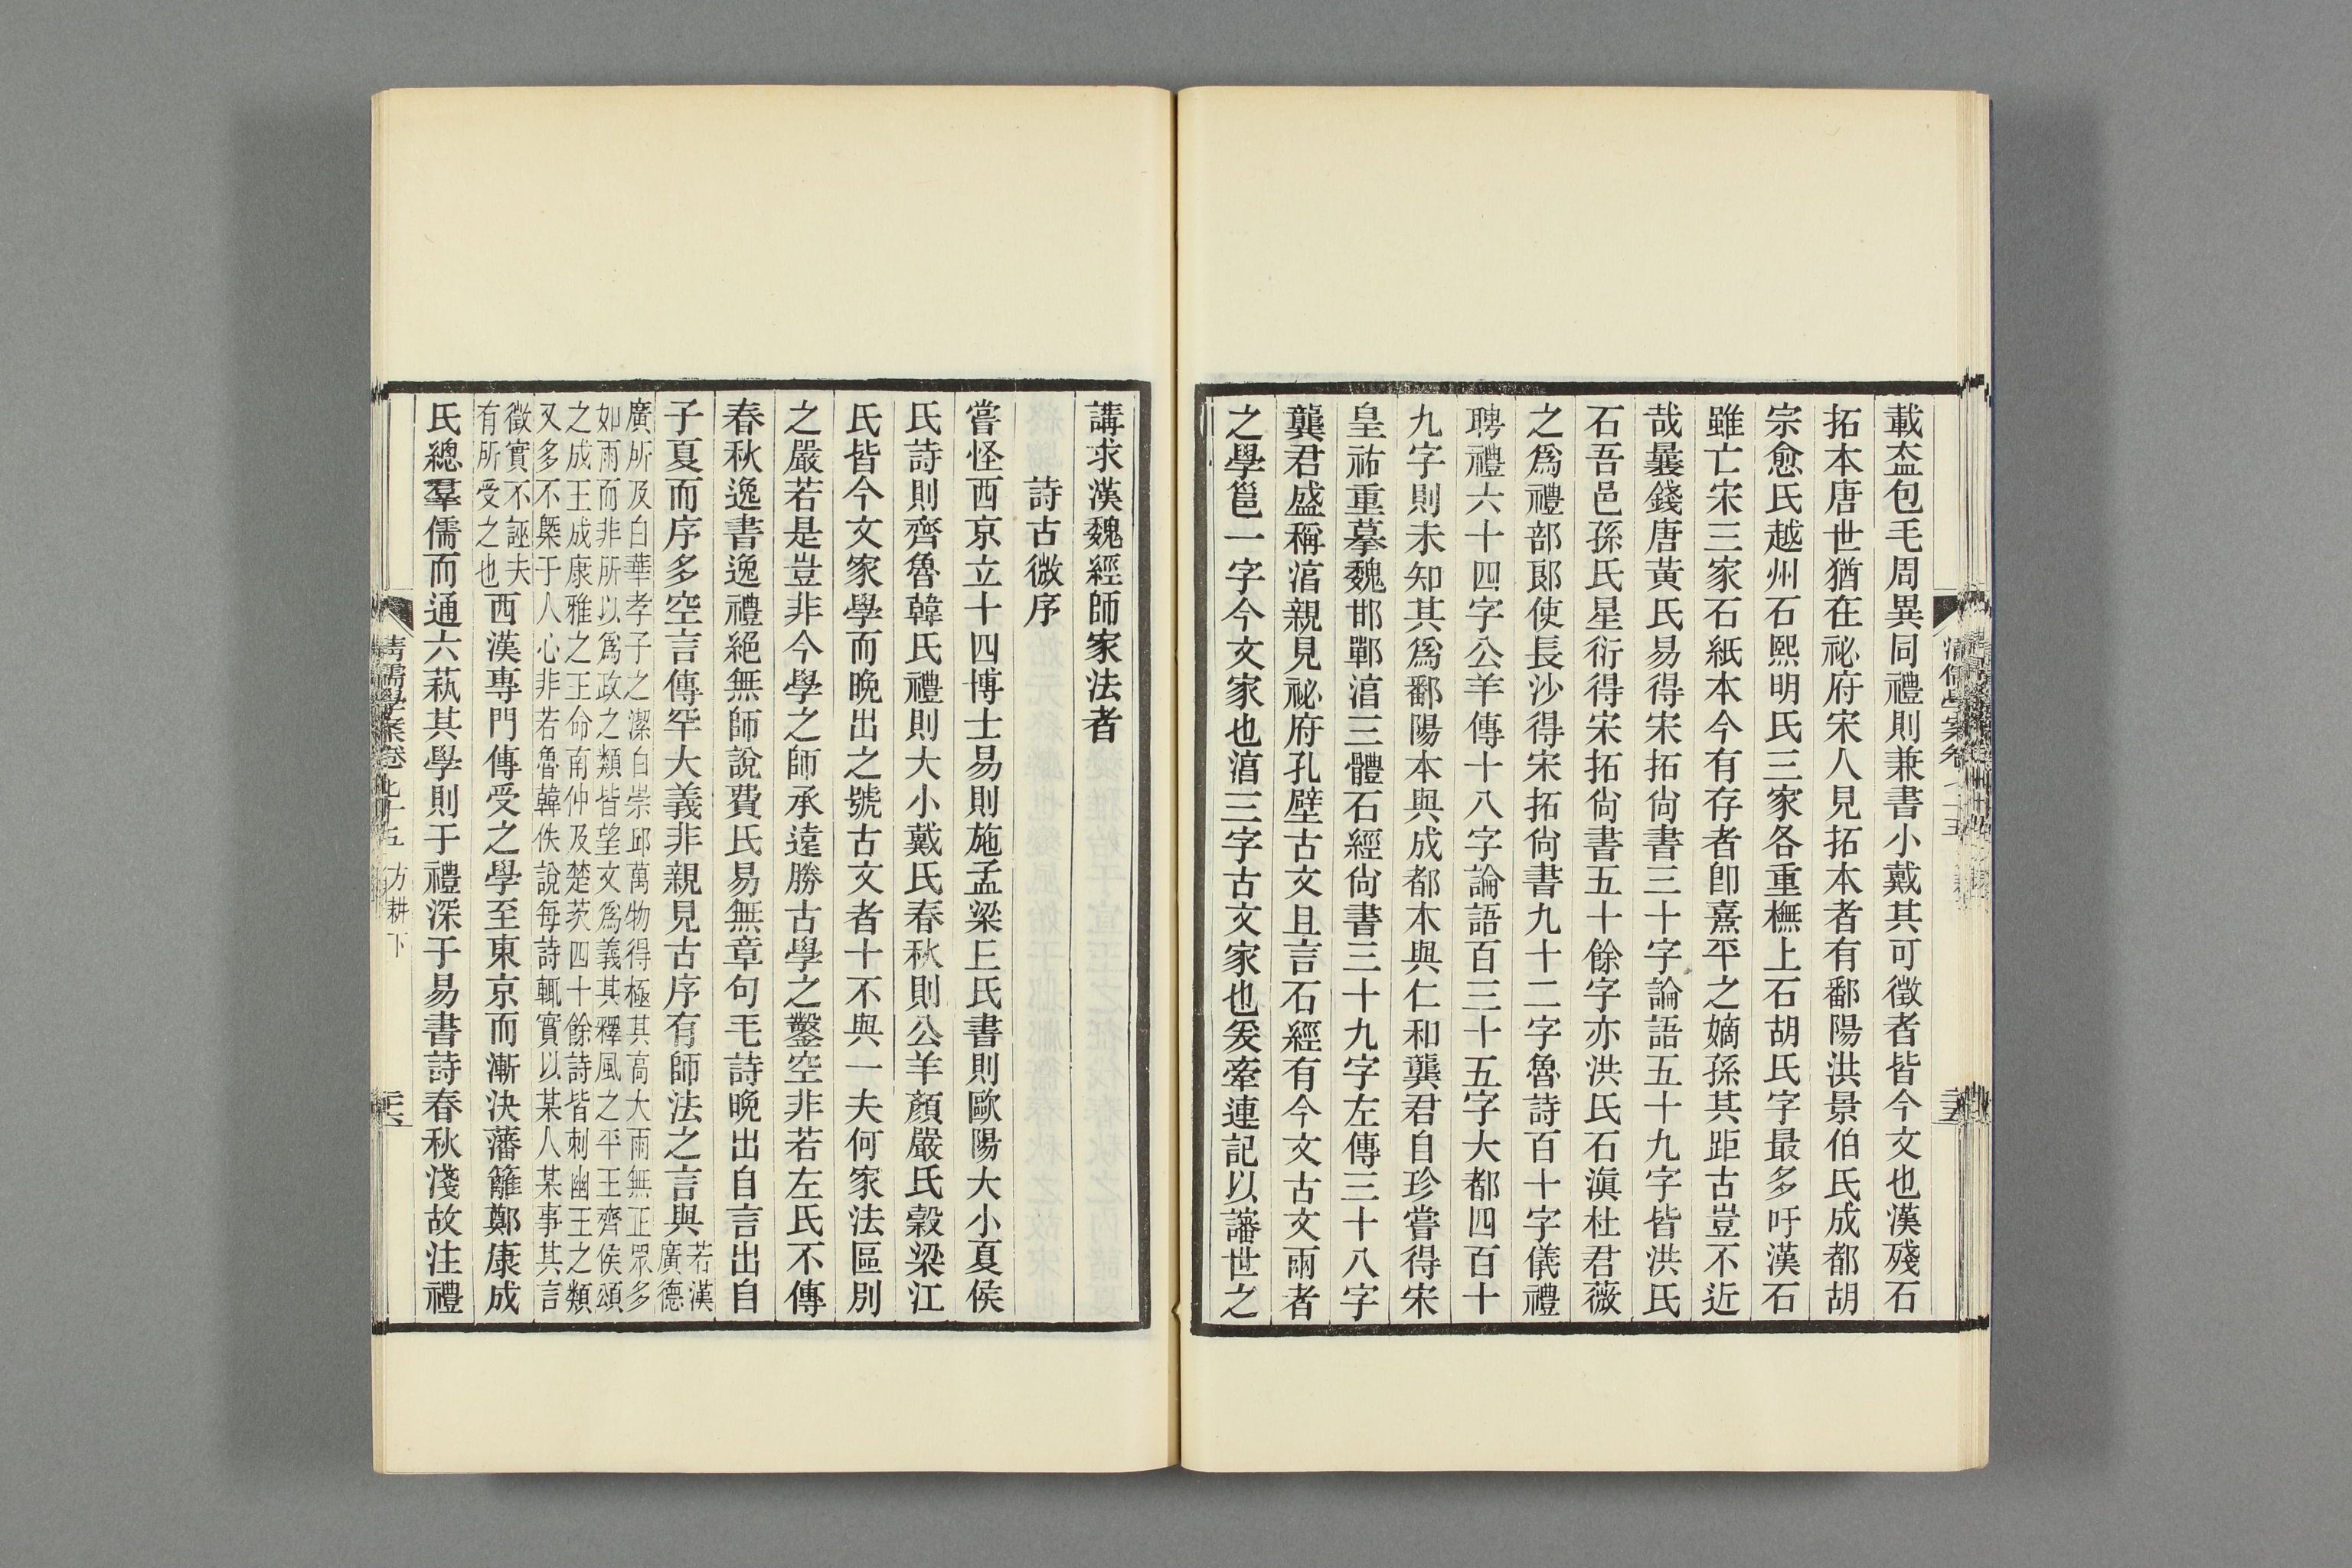 載盇包毛周異同禮則兼書小戴其可徵者皆今文也漢殘石
拓本唐世猶在祕府宋人見拓本者有鄱陽洪景伯氏成都胡
宗愈氏越州石熙明氏三家各重橅上石胡氏字最多吁漢石
雖亡宋三家石紙本今有存者卽熹平之嫡孫其距古豈不近
哉曩錢唐黃氏易得宋拓尙書三十字論語五十九字皆洪氏
石吾邑孫氏星衍得宋拓尙書五十餘字亦洪氏石滇杜君薇
之爲禮部郞使長沙得宋拓尙書九十二字魯詩百十字儀禮
聘禮六十四字公羊傳十八字論語百三十五字大都四百十
九字則未知其爲鄱陽本與成都本與仁和龔君自珍嘗得宋
皇祐重摹魏邯鄲湻三體石經尙書三十九字左傳三十八字
龔君盛稱湻親見祕府孔壁古文且言石經有今文古文兩者
之學邕一字今文家也湻三字古文家也爰牽連記以讅世之
講求漢魏經師家法者
詩古微序
嘗怪西京立十四博士易則施孟梁丘氏書則歐陽大小夏侯
氏詩則齊魯韓氏禮則大小戴氏春秋則公羊顏嚴氏穀梁江
氏皆今文家學而晚出之號古文者十不與一夫何家法區別
之嚴若是豈非今學之師承遠勝古學之鑿空非若左氏不傳
春秋逸書逸禮絕無師說費氏易無章句毛詩晚出自言出自
子夏而序多空言傳罕大義非親見古序有師法之言與
若漢
廣德
廣所及白華孝子之潔白崇邱萬物得極其高大雨無正眾多
如雨而非所以爲政之類皆望文爲義其釋風之平王齊侯頌
之成王成康雅之王命南仲及楚茨四十餘詩皆刺幽王之類
又多不槩于人心非若魯韓佚說每詩輒實以某人某事其言
徵實不誣夫
有所受之也
西漢專門傳受之學至東京而漸決藩籬鄭康成
氏總羣儒而通六蓺其學則于禮深于易書詩春秋淺故注禮
清儒學案卷七十五 方耕下